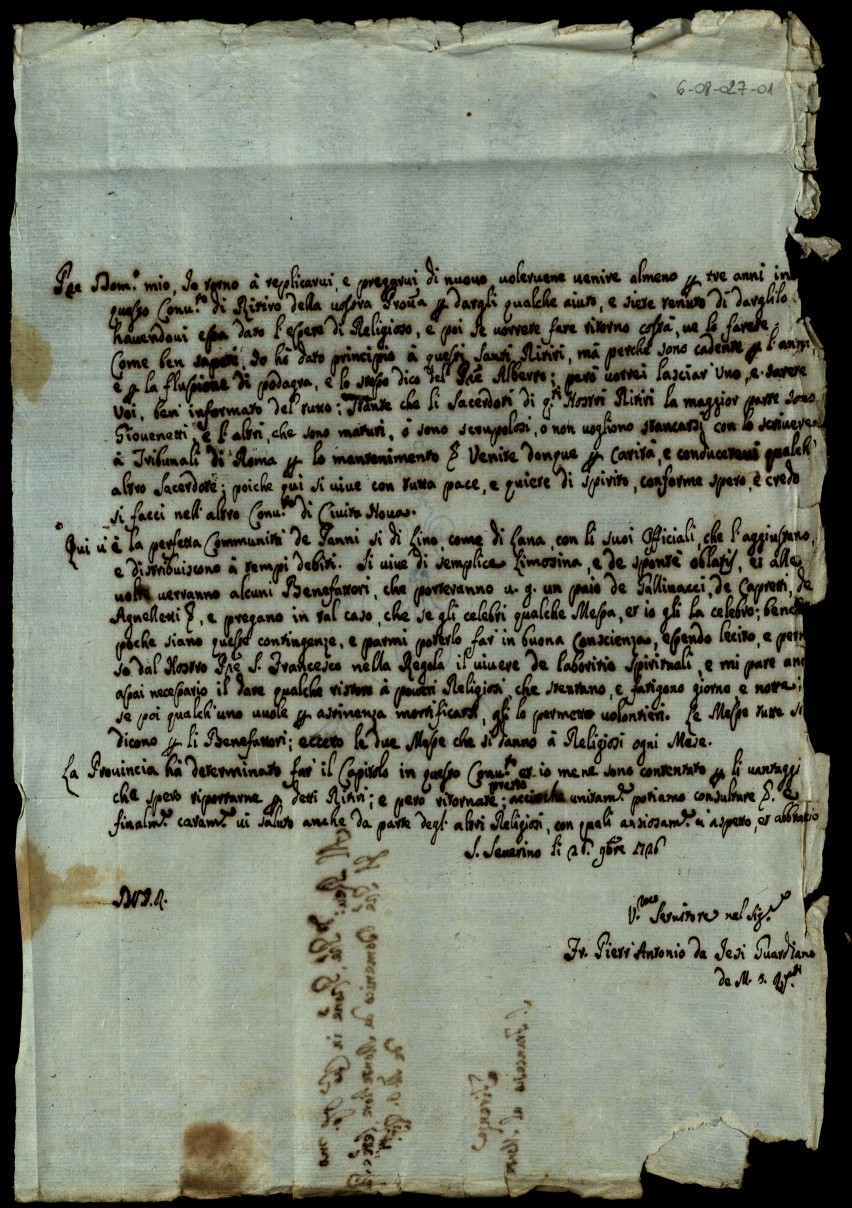 6-08-027-01
Pre Dom.º mio, Io torno à replicarvi, e pregarvi di nuovo volervene venire almeno p tre anni in
questo Conv.to di Ritiro della vostra Prova p dargli qualche aiuto, e siete tenuto di darglilo
havendovi essa dato l'essere di Religioso, e poi se vorrete fare ritorno costà, ve lo farete
Come ben sapete, Io hò dato principio à questi santi Ritiri, mà perche sono cadente p l'anni,
e p la flussione di podagra, e lo stesso dico del Pre Alberto; però vorrei lasciar uno, e sarete
voi, ben informato del tutto; Stante che li Sacerdoti di q.ti Nostri Ritiri la maggior parte sono
Giovenetti, e l'altri, che sono maturi, ò sono scrupolosi, o non vogliono stancarsi con lo scrivere
à Tribunali di Roma p lo mantenimento Venite donque p Carità, e conducetevi qualch
altro Sacerdote; poiche qui si vive con tutta pace, e quiete di spirito, conforme spero, e credo
si facci nell'altro Conv.to di Civita Nova.
Qui v'è la perfetta Communità de Panni sì di Lino, come di Lana, con li suoi Officiali, che l'aggiustano,
e distribuiscono à tempi debiti. Si vive di semplice Limosina, e de sponte oblatis, et alle
volte verranno alcuni Benefattori, che porteranno v. g. un paio de Gallinacci, de Capretti, de
Agnelletti, e pregano in tal caso, che se gli celebri qualche Messa, et io gli la celebro; benche
poche siano queste contingenze, e parmi poterlo far in buona Conscienza, essendo lecito, e perm
so dal Nostro Pre S. Francesco nella Regola il vivere de laboritio spirituali, e mi pare an
assai necessario il dare qualche ristoro à poveri Religiosi, che stentano, e fatigono giorno e notte;
se poi qualch'uno vuole p astinenza mortificarsi, gli lo permetto volontieri. Le Messe tutte si
dicono p li Benefattori; ecceto le due Messe che si danno à Religiosi ogni Mese.
La Provincia hà determinato far il Capitolo in questo Conv.to et io mene sono contentato p li vantaggi
che spero riportarne p detti Ritiri; e però ritornate presto, accioche unitam.te potiamo consultare e
finalm.te caram.te vi saluto anche da parte degl'altri Religiosi, con quali ansiosam.te v'aspetto, et abbraccio
S. Severino li 26. 9bre 1726
V.ro Servitore nel Sig.re
Fr. Pietr'Antonio da Jesi Guardiano